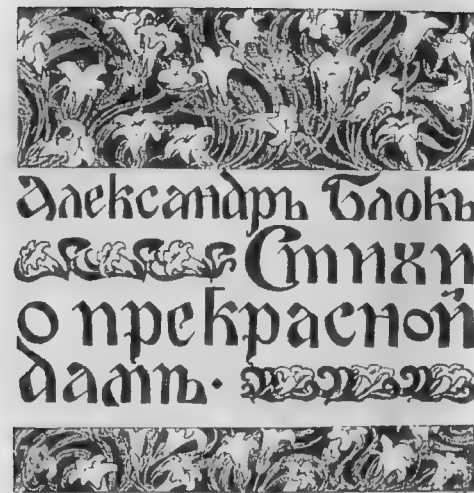 Александръ Блокъ
Стихи
о прекрасной
дамѣ.